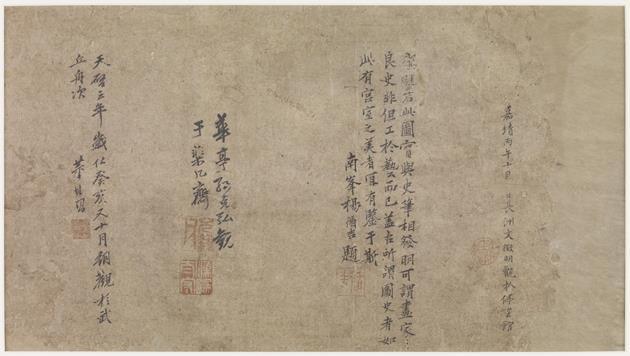 嘉靖丙午十日長洲文徵明觀於停雲館
此圖實與史筆相發明可謂畫家
良史非但工於藝而已蓋古所謂圖史者如
此有宮室之美者宜有鑒于斯
南峯楊題
華亭孫克弘觀
于齋
天啟三年歲在癸亥又十月朔觀於武
丘舟次